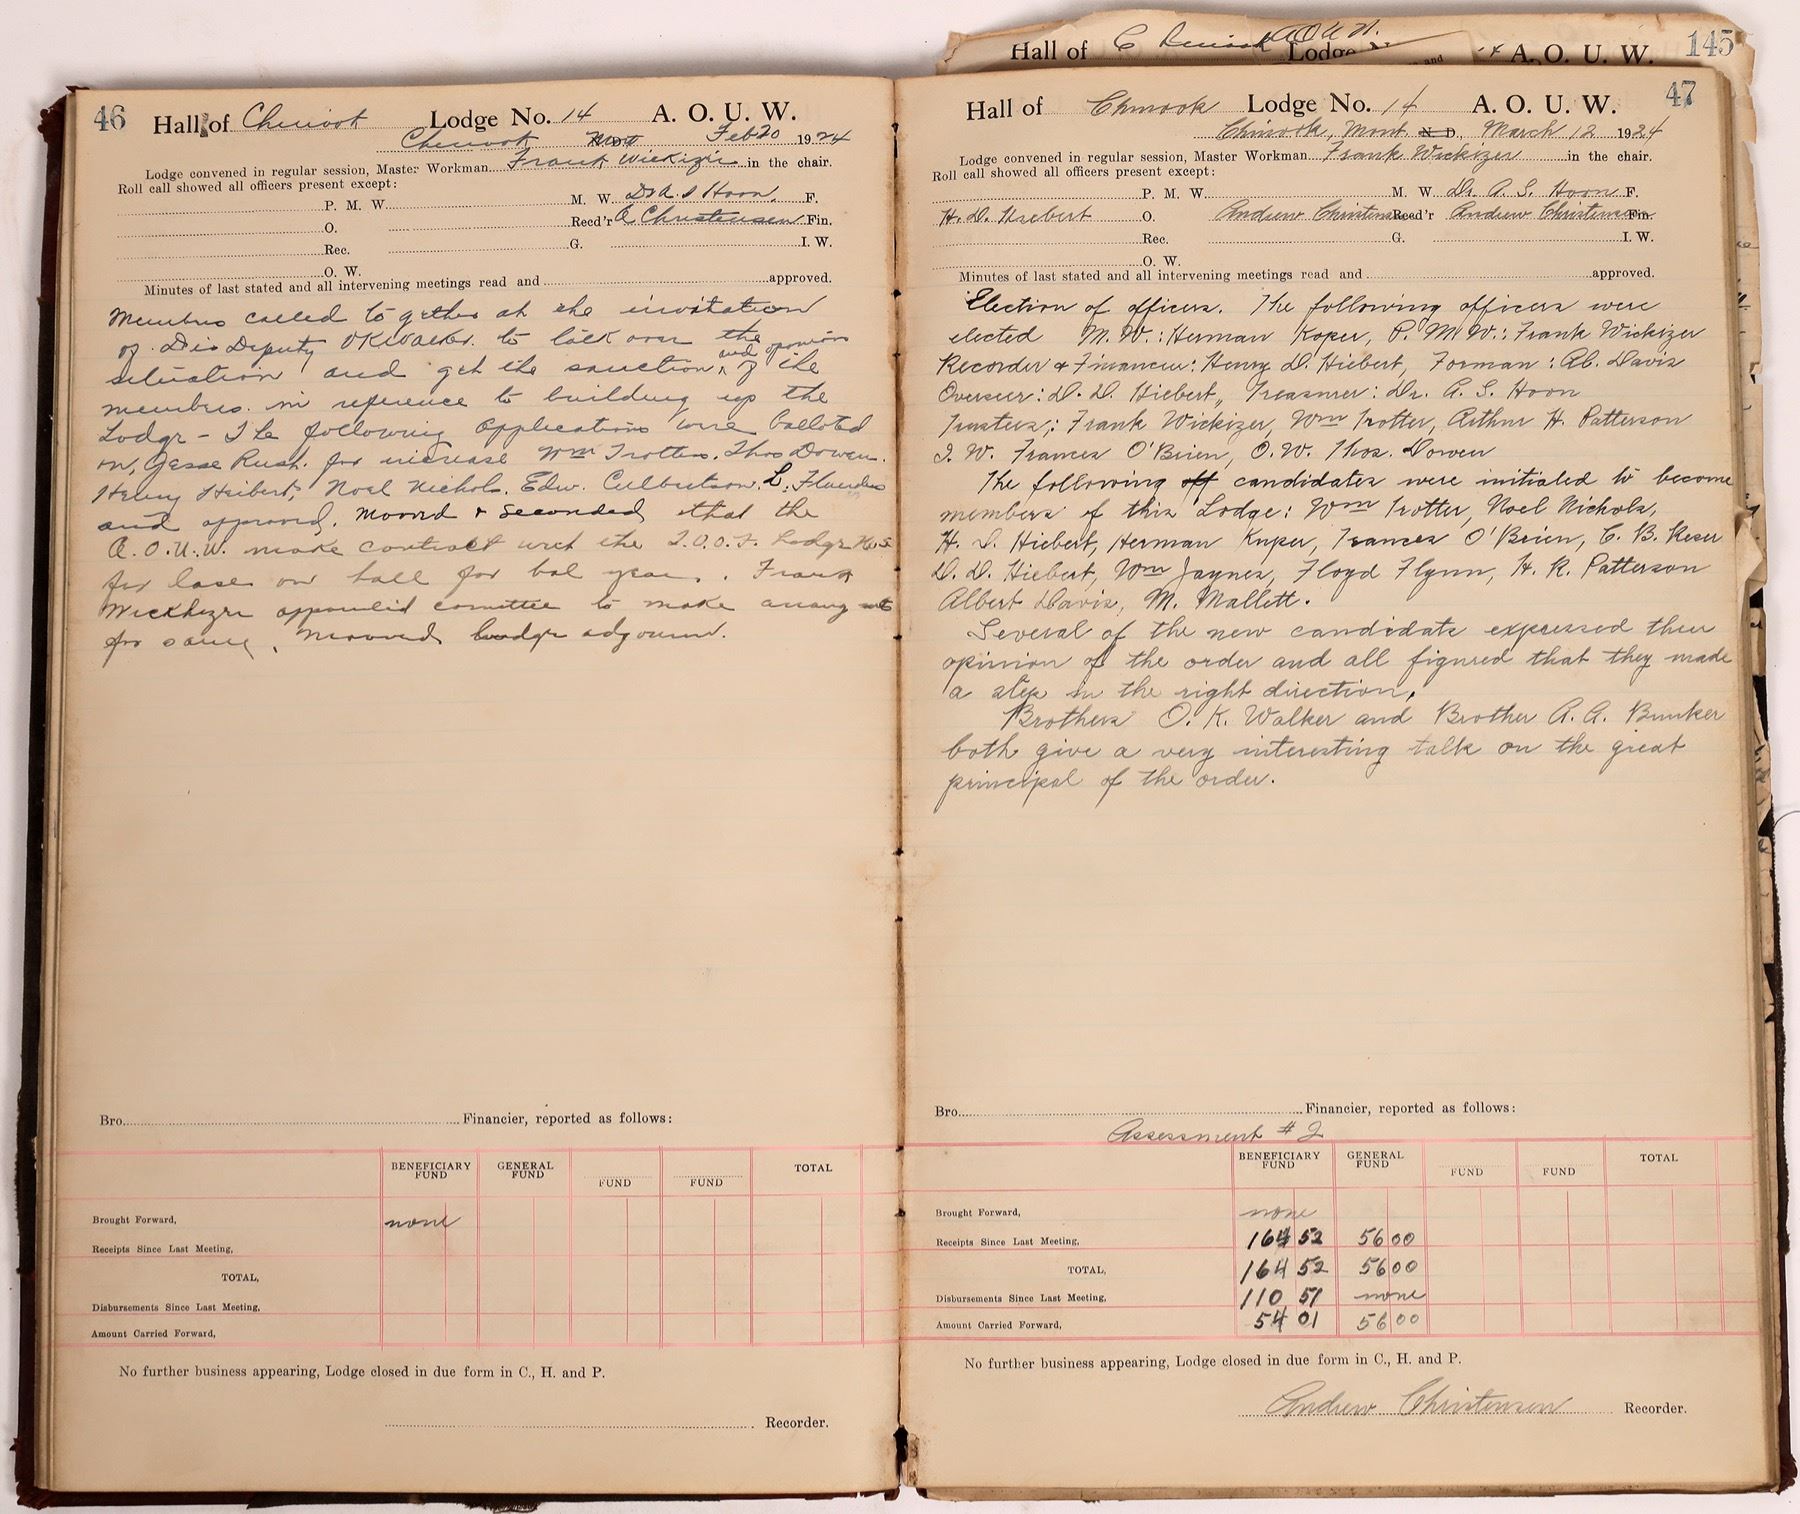 46
Hall of Chinook Lodge No. 14 A. O. U. W.
Chinook Mont Feb 20 1924
Lodge convened in regular session, Master Workman Frank Wickizer in the chair.
Roll call showed all officers present except:
P. M. W. M. W. Dr A S Hoon. F.
O. Recd'r A Christensen Fin.
Rec. G. I. W.
O. W.
Minutes of last stated and all intervening meetings read and approved.
Members called to gether at the invitation
of Dis Deputy OK Walker to look over the
situation and get the sanction and opinion of the
members in reference to building up the
Lodge - The following applications were balloted
on, Jesse Rush. for increase Wm Trotter. Thos Dowen.
Henry Heibert, Noel Nichols. Edw. Culbertson. L. Flanders
and approved. Moved & Seconded that the
A.O.U.W. make contract with the I.O.O.F. Lodge
for lease on hall for bal year. Frank
Wickhizer appointed comittee to make
for same. Mooved Lodge adjourn.
Bro. Financier, reported as follows:
BENEFICIARY FUND GENERAL FUND FUND FUND TOTAL
Brought Forward, none
Receipts Since Last Meeting,
TOTAL,
Disbursements Since Last Meeting,
Amount Carried Forward,
No further business appearing, Lodge closed in due form in C., H. and P.
Recorder.
Hall of Lodge A. O. U. W. 145
47
Hall of Chinook Lodge No. 14 A. O. U. W.
Chinook, Mont. N. D. March 12 1924
Lodge convened in regular session, Master Workman Frank Wickizer in the chair.
Roll call showed all officers present except:
P. M. W. M. W. Dr. A. S. Hoon F.
H. D. Hiebert O. Andrew Christensen Recd'r Andrew Christensen Fin.
Rec. G. I. W.
O. W.
Minutes of last stated and all intervening meetings read and approved.
Election of officers. The following officers were
elected M. W.: Herman Koper, P. M. W.: Frank Wickizer
Recorder & Financier: Henry D. Hiebert, Forman: Ab. Davis
Overseer: D. D. Hiebert, Treasurer: Dr. A. S. Hoon
Trustees: Frank Wickizer, Wm Trotter, Arthur H. Patterson
I. W. Frances O'Brien, O. W. Thos. Dowen
The following off candidates were initialed to become
members of this Lodge: Wm Trotter, Noel Nichols,
H. D. Hiebert, Herman Kuper, Frances O'Brien, C. B. Reser
D. D. Hiebert, Wm Jaynes, Floyd Flynn, H. R. Patterson
Albert Davis, M. Mallett.
Several of the new candidate expressed their
opinion of the order and all figured that they made
a step in the right direction.
Brothers O. K. Walker and Brother A. A. Bunker
both give a very interesting talk on the great
principal of the order.
Bro. Financier, reported as follows:
Assessment # 2
BENEFICIARY FUND GENERAL FUND FUND FUND TOTAL
Brought Forward, none
Receipts Since Last Meeting, 164 52 56 00
TOTAL, 164 52 56 00
Disbursements Since Last Meeting, 110 51 none
Amount Carried Forward, 54 01 56 00
No further business appearing, Lodge closed in due form in C., H. and P.
Andrew Christensen Recorder.